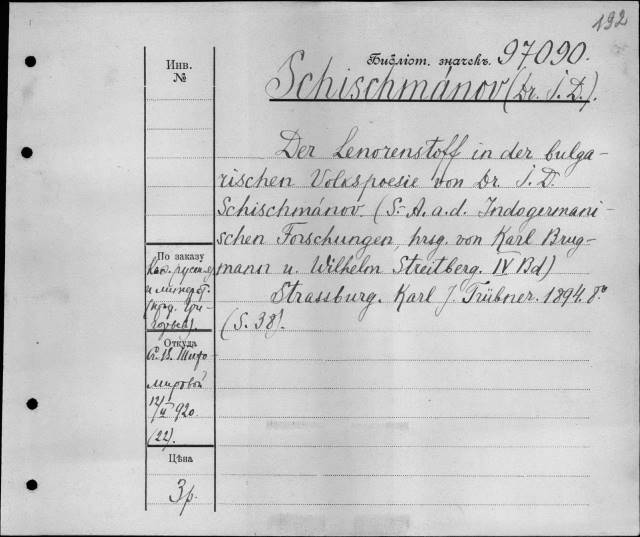 192
Библіот. значекъ. 97.090.
Инв.
№
Schischmánov (Dr. I. D.).
Der Lenorenstoff in der bulga-
rischen Volkspoesie von Dr. I. D.
Schischmánov. (S.-A. a. d. Indogermani-
schen Forschungen, hrsg. von Karl Brug-
mann u. Wilhelm Streitberg. IV Bd)
Strassburg. Karl J. Trübner. 1894. 8º
(S. 38).
По заказу
Откуда
12/II 920.
(22).
Цѣна
3 р.